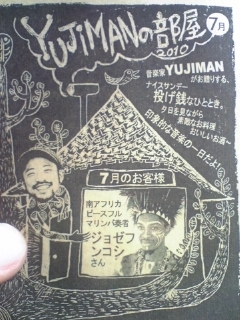 YUJIMANの部屋 7月
2010
音楽家YUJIMAN
がお贈りする、
ナイスサンデー
投げ銭なひととき。
夕日を見ながら
素敵なお料理
おいしいお酒〜
印象的な音楽の一日だよ!
7月のお客様
南アフリカ
ピースフル
マリンバ奏者
ジョゼフ
ンコシ
さん